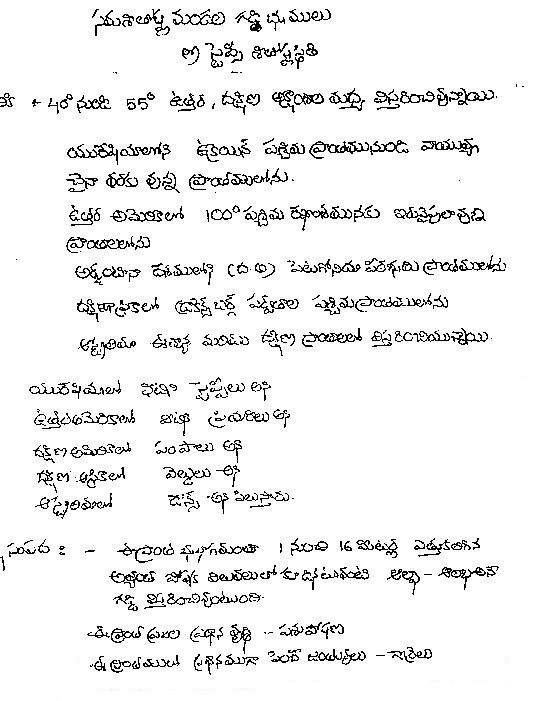 సమశీతోష్ణ మండల గడ్డి భూములు
(లు) స్టెప్పీ శీతోష్ణస్థితి
+ 40° నుండి 55° ఉత్తర, దక్షిణ అక్షాంశాల మధ్య విస్తరించివున్నాయి.
యురేషియాలోని ఉక్రెయిన్ పశ్చిమ ప్రాంతమునుండి వాయువ్య
చైనా వరకు వున్న ప్రాంతములోను.
ఉత్తర అమెరికాలో 100° పశ్చిమ రేఖాంశమునకు ఇరువైపులావున్న
ప్రాంతాలలోను
అర్జెంటినా దేశములోని (ద.అ) పెటగోనియా పీఠభూమి ప్రాంతములోను
దక్షిణాఫ్రికాలో డ్రాకెన్స్ బర్గ్ పర్వతాల పశ్చిమప్రాంతములోను
ఆస్ట్రేలియా ఈశాన్య మరియు దక్షిణ ప్రాంతాలలో విస్తరించియున్నాయి.
యురేషియాలో వీటిని స్టెప్పీలు అని
ఉత్తరఅమెరికాలో వీటిని ప్రయిరీలు అని
దక్షిణ అమెరికాలో పంపాలు అని
దక్షిణ ఆఫ్రికాలో వెల్డులు అని
ఆస్ట్రేలియాలో డౌన్స్ అని పిలుస్తారు.
సంపద : - ఈప్రాంత భూభాగమంతా 1 నుంచి 16 మీటర్ల ఎత్తుకలిగిన
అత్యంత పోషక విలువలులో కూడినటువంటి ఆల్ఫా - ఆల్ఫాఅనే
గడ్డి విస్తరించివుంటుంది.
ఈప్రాంత ప్రజల ప్రధాన వృత్తి - పశుపోషణ
ఈ ప్రాంతములో ప్రధానముగా పెంచే జంతువులు - గొర్రెలు